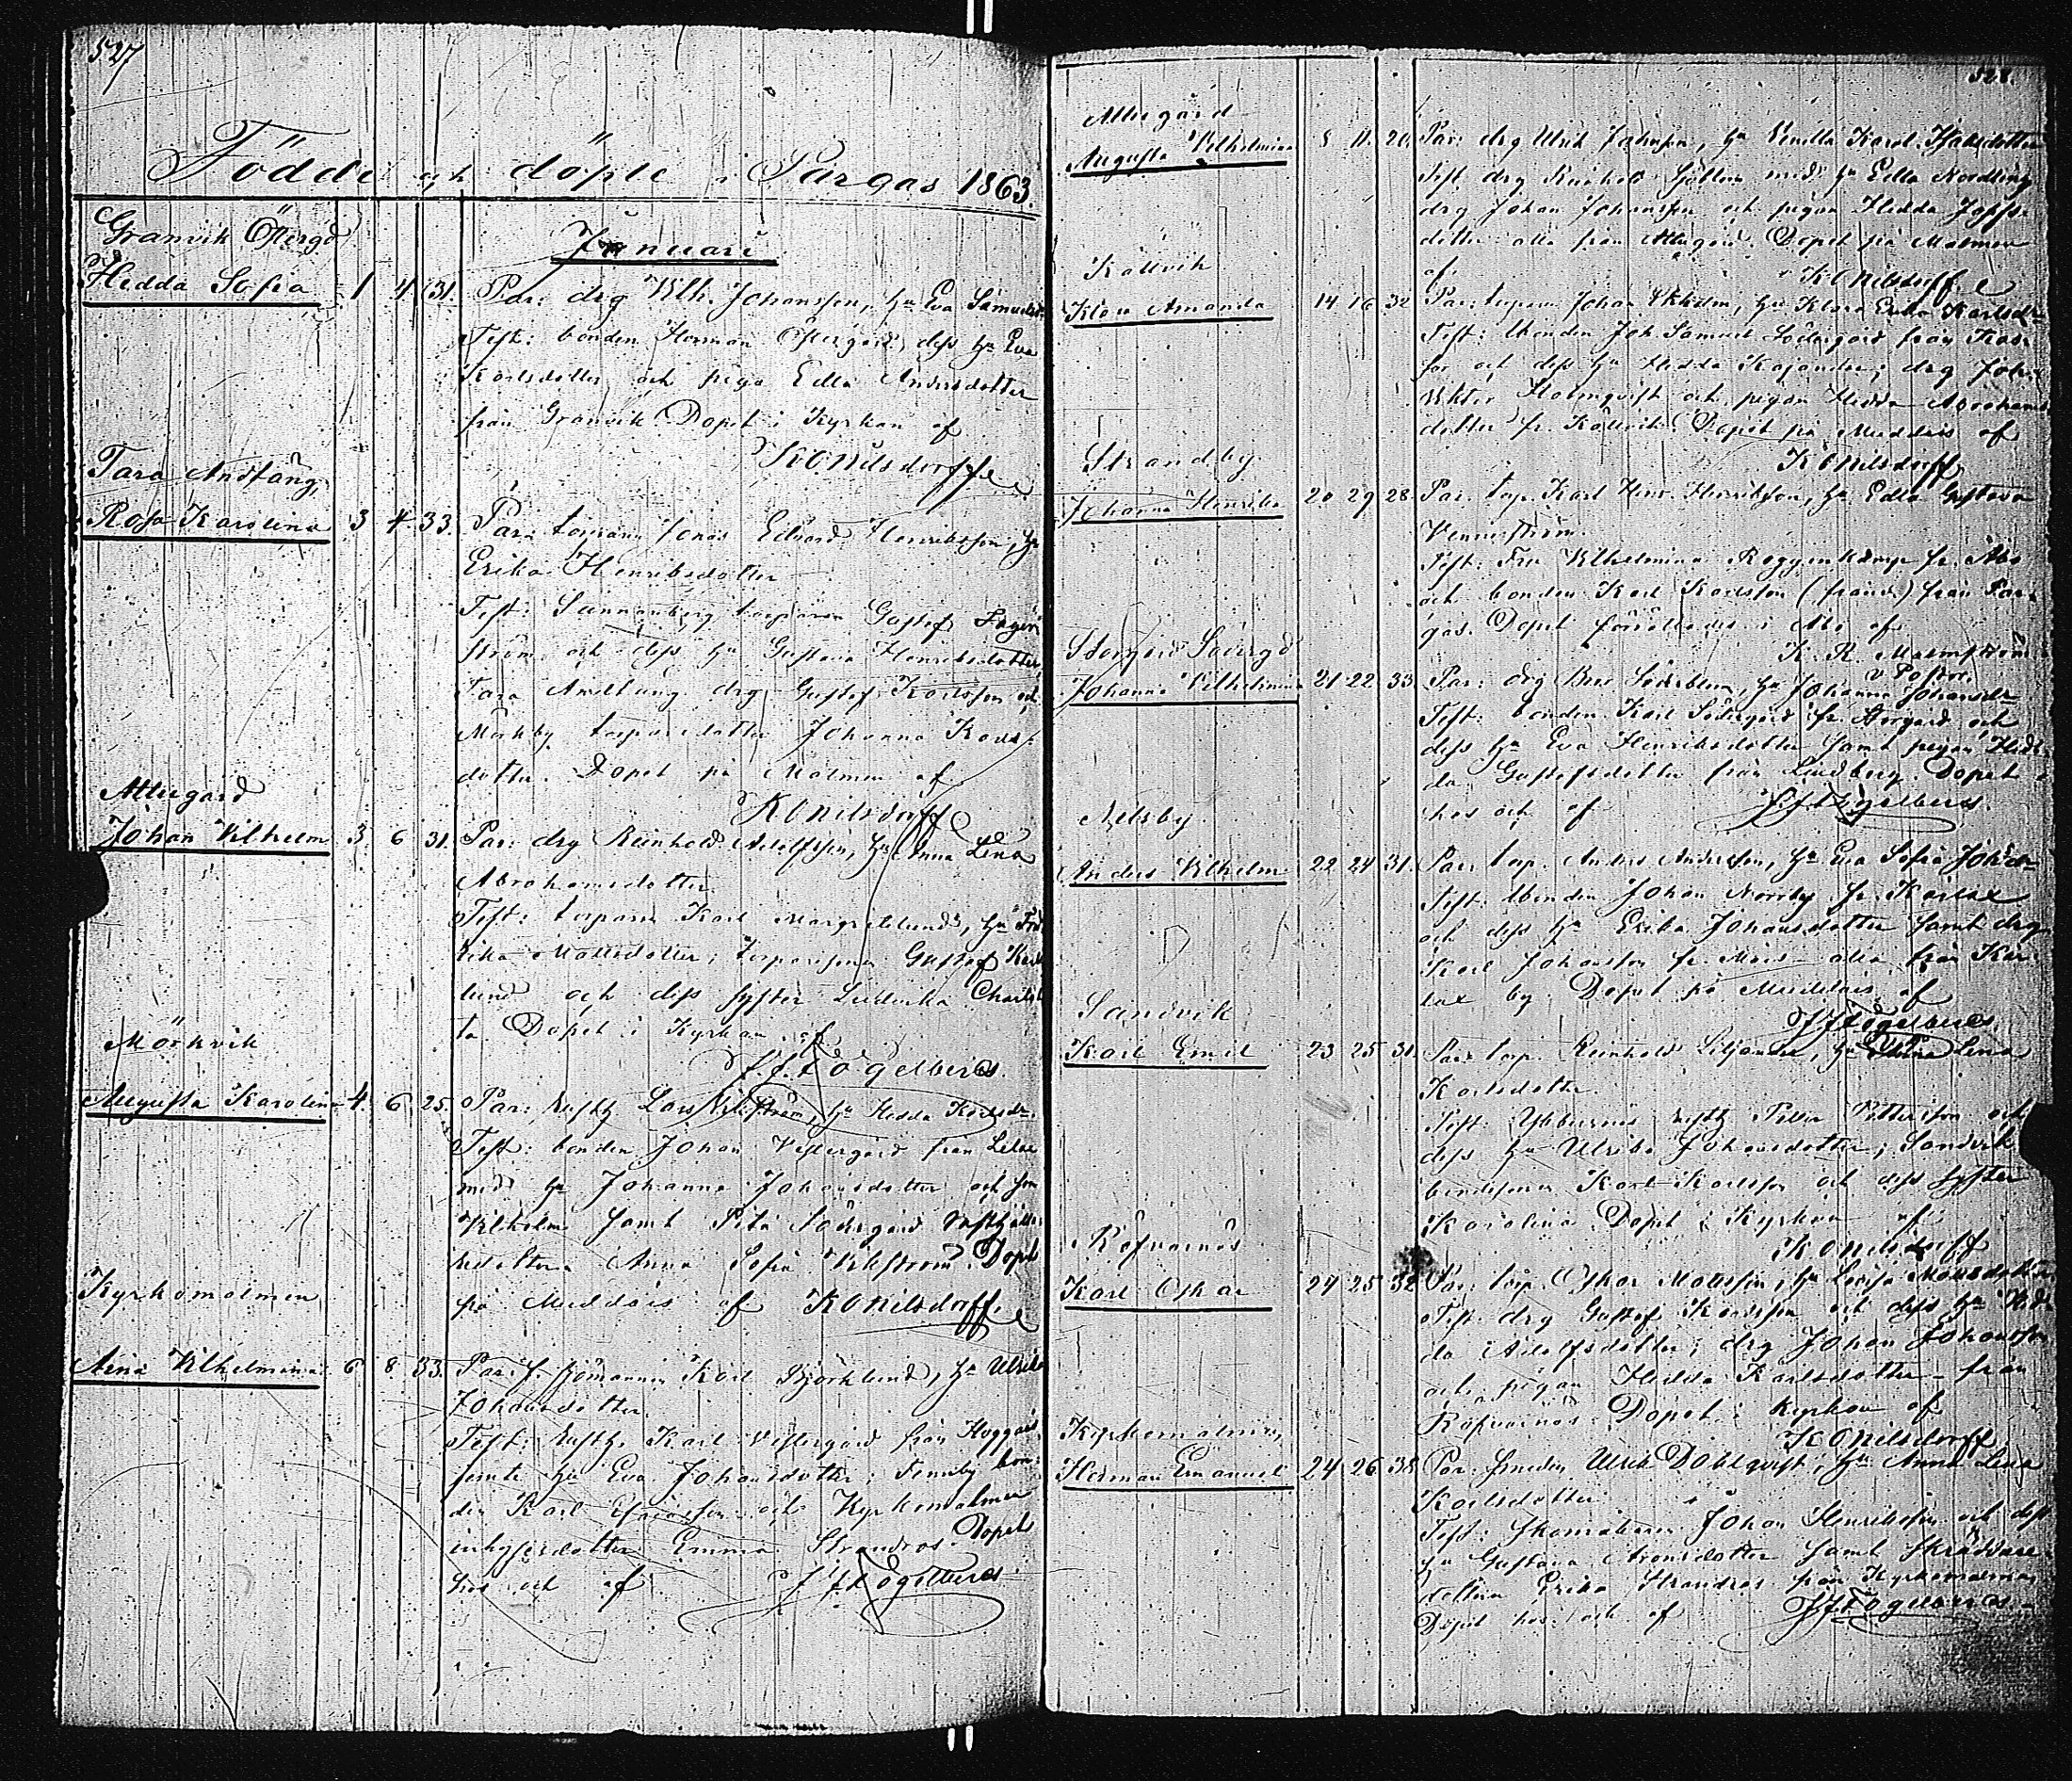 527
Födde och döpte i Pargas 1863.
Januari
Granvik Östergd
Hedda Sofia 1 4 31. Par: drg Vilh. Johansson, hu Eva Samuelsdr
Test: bonden Herman Östergård, dess hu Eva
Karlsdotter och piga Edla Andersdotter
från Granvik Döpet i Kyrkan af
K O Nilsdorff
Tara Andtäng
Rosa Karolina 3 4 33. Par: torparen Jonas Edvard Henriksson, hu
Erika Henriksdotter
Test: Sunnanberg torparen Gustaf Lager
ström och dess hu Gustava Henriksdotter
Tara Andtäng drg Gustaf Karlsson och
Mörkby torparedotter Johanna Karls
dotter. Döpet på Malmen af
K O Nilsdorff
Attugård
Johan Vilhelm 3 6 31. Par: drg Reinhold Adolfsson, hu Anna Lena
Abrahamsdotter
Test: torparen Karl Margretelund, hu Fred
rika Mattsdotter; torparesonen Gustaf
lund och dess syster Charlot
ta Döpet i Kyrkan af
J. J. Fogelberg.
Mörkvik
Augusta Karolina 4. 6. 25. Par: Lars Vikström, hu Hedda Karlsdr.
Test: bonden Johan Vestergård från
med hu Johanna Johansdotter och son
Vilhelm samt
dottern Anna Sofia Vikström. Döpet
på Muddais af K O Nilsdorff
Kyrkomalmen
Aina Vilhelmina 6 8 33. Par: f. sjömannen Karl Björklund, hu Ulrika
Johansdotter.
Test: Karl Vestergård från
jemte hu Eva Johansdotter; Tennby bon
den Karl och Kyrkomalmen
inhysesdotter Emma Strandros. Döpet
hos och af J. J. Fogelberg
528.
Attugård
Augusta Vilhelmina 8 11. 20. Par: drg Ulrik Johnsson, hu Karol. Isaksdotter
Test. drg med hu Edla Nordling
drg Johan Johansson och pigan Hedda
dotter alla från Attugård. Döpet på Malmen
af K O Nilsdorff
Källvik
Klara Amanda 14 16 32 Par: torparen Johan Ekholm, hu Klara Erika Karlsdr
Test: bonden Joh. Samuel Södergård från
för och dess hu Hedda Kajander; drg Joh.
Viktor Holmqvist och pigan Hedda Abrahams
dotter fr. Källvik. Döpet på Muddais af
K O Nilsdorff
Strandby
Johanna Henrika 20 29 28. Par. torp. Karl Henr. Henriksson, hu Edla Gustava
Venneström.
Test: Fru Vilhelmina fr. Åbo
och bonden Karl Karlsson från Par
gas. Döpet förrättades i Åbo af
K. R. Malmström
v Pastor.
Storgård Södergd
Johanna Vilhelmina 21 22 33 Par: drg Söderblom, hu Johanna Johansdr
Test: bonden Karl Södergård fr. Storgård och
dess hu Eva Henriksdotter samt pigan Hed
da Gustafsdotter från Lindberg. Döpet
hos och af J. J. Fogelberg.
Nelsby
Anders Vilhelm 22 24 31. Par: torp. Anders Andersson, hu Eva Sofia Johdr
Test. bonden Johan Norrby fr. Karlax
och dess hu Erika Johansdotter samt drg
Karl Johansson fr. alla från Kar
lax by. Döpet på Muddais af
J J Fogelberg
Sandvik
Karl Emil 23 25 31 Par: torp. Reinhold Liljander, hu Lena
Karlsdotter
Test: Petter Pettersson och
dess hu Ulrika Johansdotter; Sandvik
bondesonen Karl Karlsson och dess syster
Karolina. Döpet i Kyrkan af
K O Nilsdorff
Räfvarnäs
Karl Oskar 24 25 32 Par: torp. Oskar Mattsson, hu Lovisa Mattsdotter
Test. drg Gustaf Karlsson och dess hu Hed
da Adolfsdotter; drg Johan Johansson
och pigan Hedda Karlsdotter från
Räfvarnäs. Döpet i Kyrkan af
K O Nilsdorff
Kyrkomalmen
Herman Emanuel 24 26 38 Par: smeden Ulrik Dahlqvist, hu Anna Lena
Karlsdotter
Test: skomakaren Johan Henriksson och dess
hu Gustava Aronsdotter samt skräddare
dottern Erika Strandros från Kyrkomalmen
Döpet hos och af J J Fogelberg